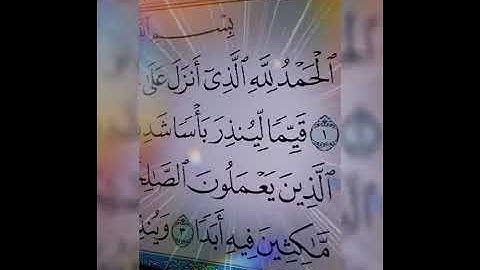 بِسْمِ
ٱلْحَمْدُ لِلَّهِ ٱلَّذِىٓ أَنزَلَ عَلَىٰ
۝١ قَيِّمًا لِّيُنذِرَ بَأْسًا
ٱلَّذِينَ يَعْمَلُونَ
مَّٰكِثِينَ فِيهِ أَبَدًا ۝٣